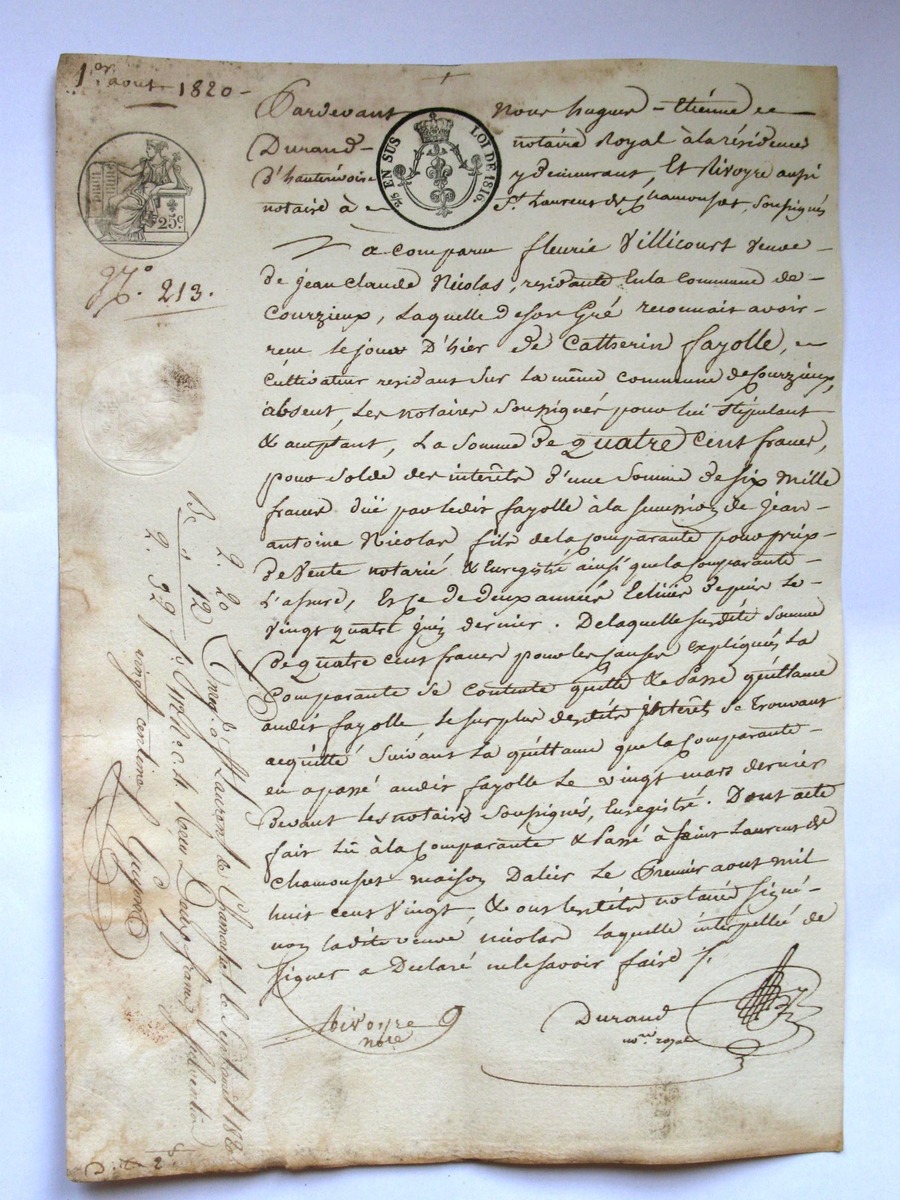 1er aout 1820
Pardevant Nous hugues Etiénne
Durand notaire Royal à la résidence
d'hauterivoire y demeurant, Et Rivoyre aussi
notaire à St Laurent de Chamousset, soussignés
2/5 EN SUS LOI DE 1816.
25c.
No. 213.
a comparue fleurie Villicourt veuve
de jean Claude Nicolas, residante En la commune de
Courzieux, Laquelle de son Gré reconnais avoir
recu le jour d'hier de Catherin fayolle,
Cultivateur residant sur la même commune de Courzieux,
absent, Les notaires soussignés pour lui stipulant
& acceptant, La somme de quatre Cent francs,
pour solde des interêts d'une somme de six mille
francs düe par ledit fayolle à la de jean
antoine Nicolas fils de la Comparante pour prix
de Vente notarié & Enregistré ainsi que la Comparante
L'assure, Et ce de deux années Echues depuis le
vingt quatre juin dernier. De laquelle susdite somme
de quatre cent francs pour les causes expliqués La
Comparante se contente quitte & Passe quittance
audit fayolle, le surplus desdits interêts se trouvant
acquitté suivant la quittance que la Comparante
en a passé audit fayolle le vingt mars dernier
devant les notaires soussignés, Enregistré. Dont acte
fait Lû à la Comparante & Passé à saint Laurent de
chamousset maison Dalier le Premier aout mil
huit cent vingt, & ont lesdits notaires signé
non ladite veuve nicolas laquelle interpellé de
signer a Declaré ne le savoir faire
Rivoyre
nore
Durand
nore royal
2. 20
12
2. 32
Enreg. à St Laurent de Chamousset le sept aout 1820
fo. 72 Ro. c. 4 recu Deux francs
vingt centimes